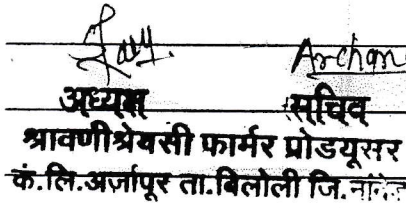 Archan
अध्यक्ष सचिव
श्रावणीश्रेयसी फार्मर प्रोडयूसर
कं.लि.अर्जापूर ता.बिलोली जि.नांदेड